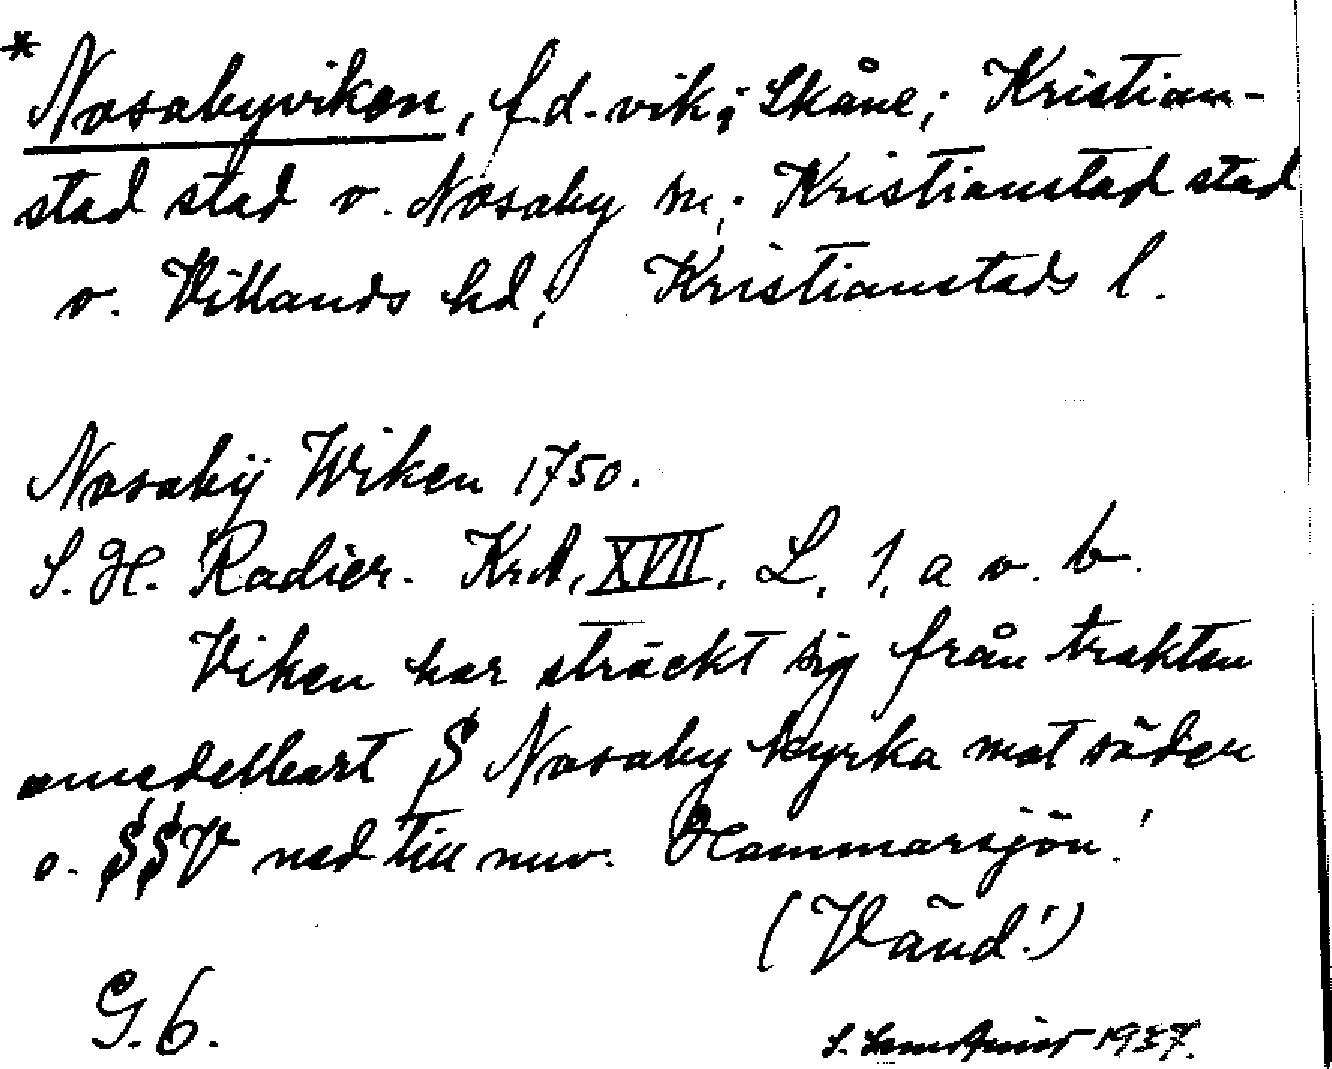 * Nosabyviken, f d. vik; Skåne; Kristian-
stad stad o. Nosaby sn; Kristianstad stad
o. Villands hd; Kristianstads l.
Nosabÿ Wiken 1750.
S. H. Radier. KrA, XVII. L. 1, a o. b.
Viken har sträckt sig från trakten
omedelbart S Nosaby kyrka mot söder
o. SSV ned till nuv. Hammarsjön!
(Vänd!)
G. 6.
S. 1937.